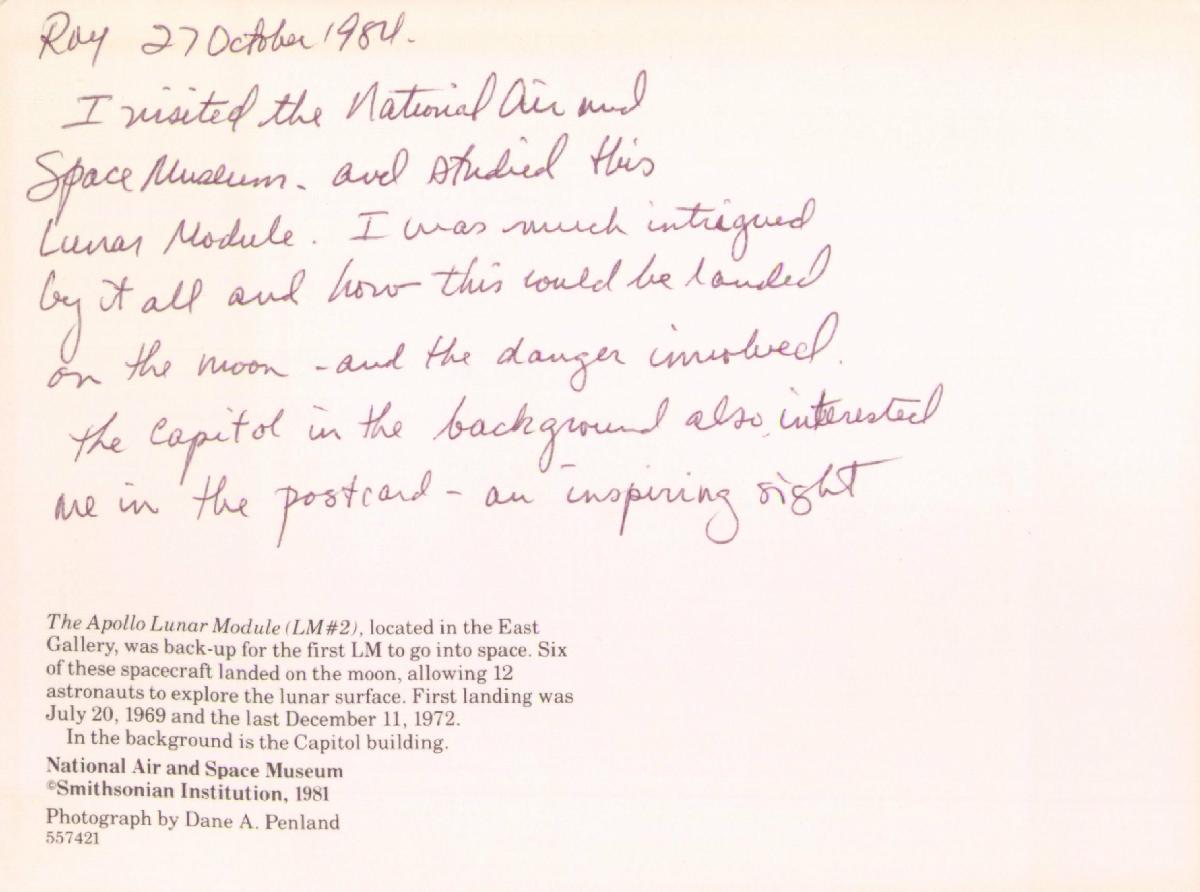 Roy 27 October 1984.
I visited the National Air and
Space Museum. and studied this
Lunar Module. I was much intrigued
by it all and how this could be landed
on the moon - and the danger involved.
the Capitol in the background also interested
me in the postcard - an inspiring sight
The Apollo Lunar Module (LM#2), located in the East
Gallery, was back-up for the first LM to go into space. Six
of these spacecraft landed on the moon, allowing 12
astronauts to explore the lunar surface. First landing was
July 20, 1969 and the last December 11, 1972.
In the background is the Capitol building.
National Air and Space Museum
©Smithsonian Institution, 1981
Photograph by Dane A. Penland
557421